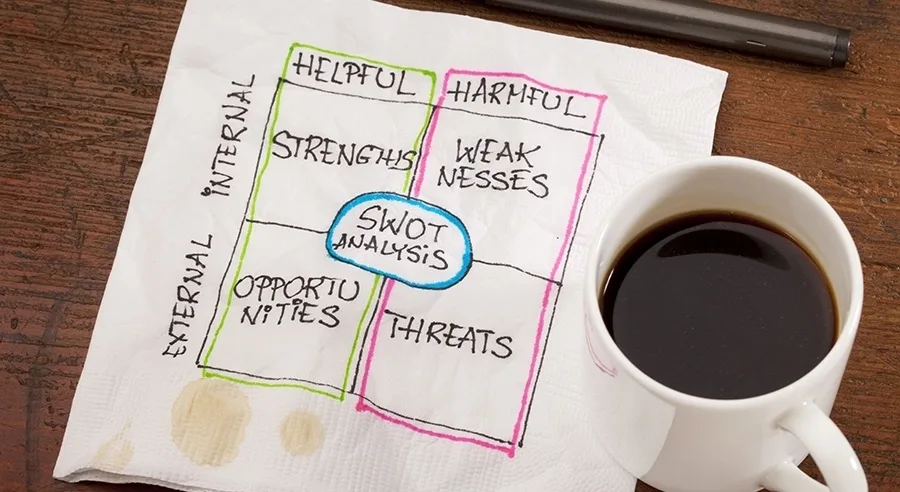 HELPFUL
HARMFUL
INTERNAL
STRENGTHS
WEAK
NESSES
SWOT
ANALYSIS
EXTERNAL
OPPORTU
NITIES
THREATS